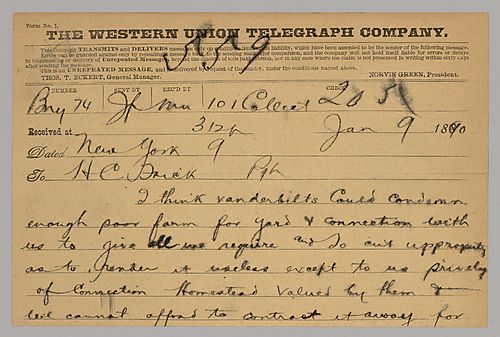 Form No. 1.
THE WESTERN UNION TELEGRAPH COMPANY.
This Company TRANSMITS and DELIVERS messages only on conditions limiting its liability, which have been assented to by the sender of the following message.
Errors can be guarded against only by repeating a message back to the sending station for comparison, and the company will not hold itself liable for errors or delays
in transmission or delivery of Unrepeated Messages, beyond the amount of tolls paid thereon, nor in any case where the claim is not presented in writing within sixty days
after sending the message.
This is an UNREPEATED MESSAGE, and is delivered by request of the sender, under the conditions named above.
THOS. T. ECKERT, General Manager. NORVIN GREEN, President.
NUMBER SENT BY REC'D BY CHECK
74 101 Collect
Received at 312p Jan 9 1890
Dated New York 9
To H C Frick Pgh
I think vanderbilts Could Condemn
enough poor farm for yard & connection with
us to give all we require and so cut up property
as to render it useless except to us
of Connection Homestead Valued by them &
will cannot afford to contract it away for